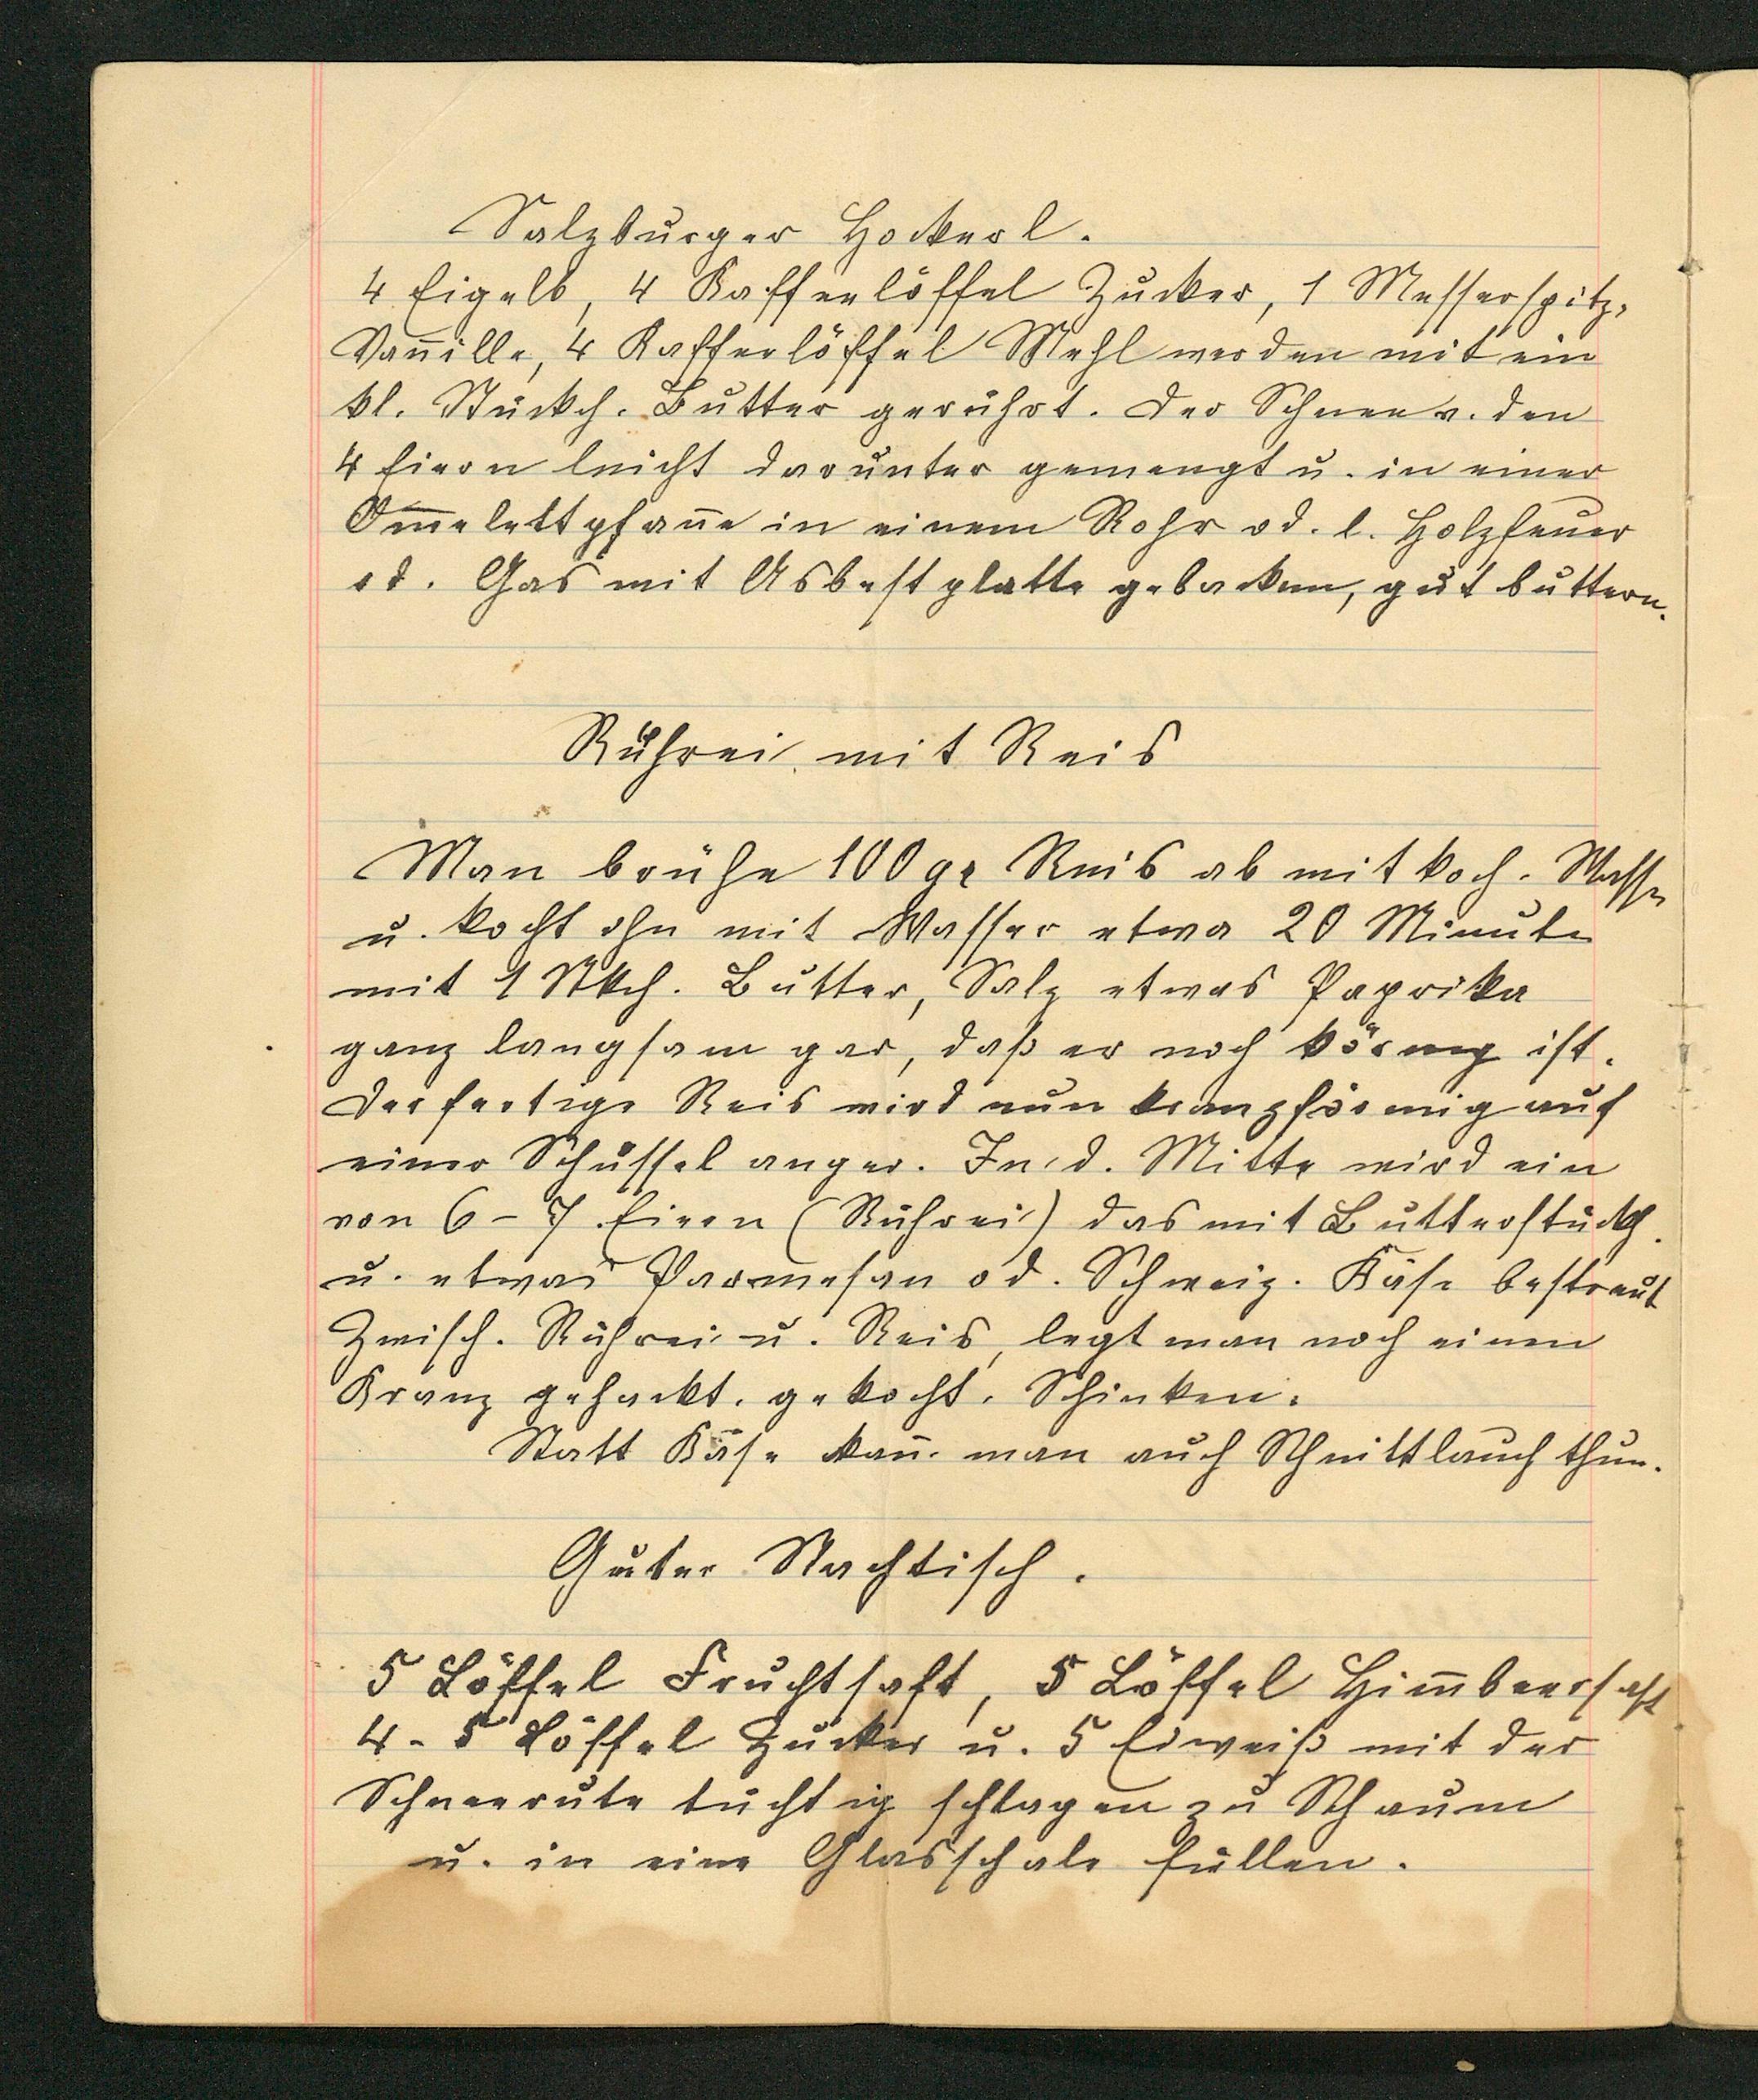 Salzburger Hockerl.
4 Eigelb, 4 Kaffeelöffel Zucker, 1 Messerspitz,
Van̄ille, 4 Kaffeelöffel Mehl werden mit ein
kl. Stückch. Butter gerührt. Der Schnee v. den
4 Eiern leicht darunter gemengt u. in einer
Om̄elettpfan̄e in einem Rohr od. l. Holzfeuer
od. Gas mit Asbestplatte gebacken, gut buttern.
Rührei mit Reis
Man brühe 100 gr Reis ab mit koch. Wasser
u. kocht ihn mit Wasser etwa 20 Minuten
mit 1 Stkch. Butter, Salz etwas Paprika
ganz langsam gar, daß er noch körnig ist.
Der fertige Reis wird nun kranzförmig auf
einer Schüssel anger. In d. Mitte wird ein
von 6 - 7 Eiern (Rührei) das mit Butterstückch.
u. etwas Parmesan od. Schweiz. Käse bestreut
Zwisch. Rührei u. Reis, legt man noch einen
Kranz gehackt. gekocht. Schinken.
Statt Käse kan̄ man auch Schnittlauch thun.
Guter Nachtisch.
5 Löffel Fruchtsaft, 5 Löffel Him̄beersaft
4 - 5 Löffel Zucker u. 5 Eiweiß mit der
Schneerute tüchtig schlagen zu Schaum
u. in eine Glasschale füllen.